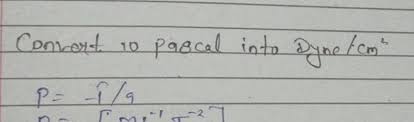 Convert 10 pascal into Dyne/cm²
P = F/a
P = [ML⁻¹T⁻²]